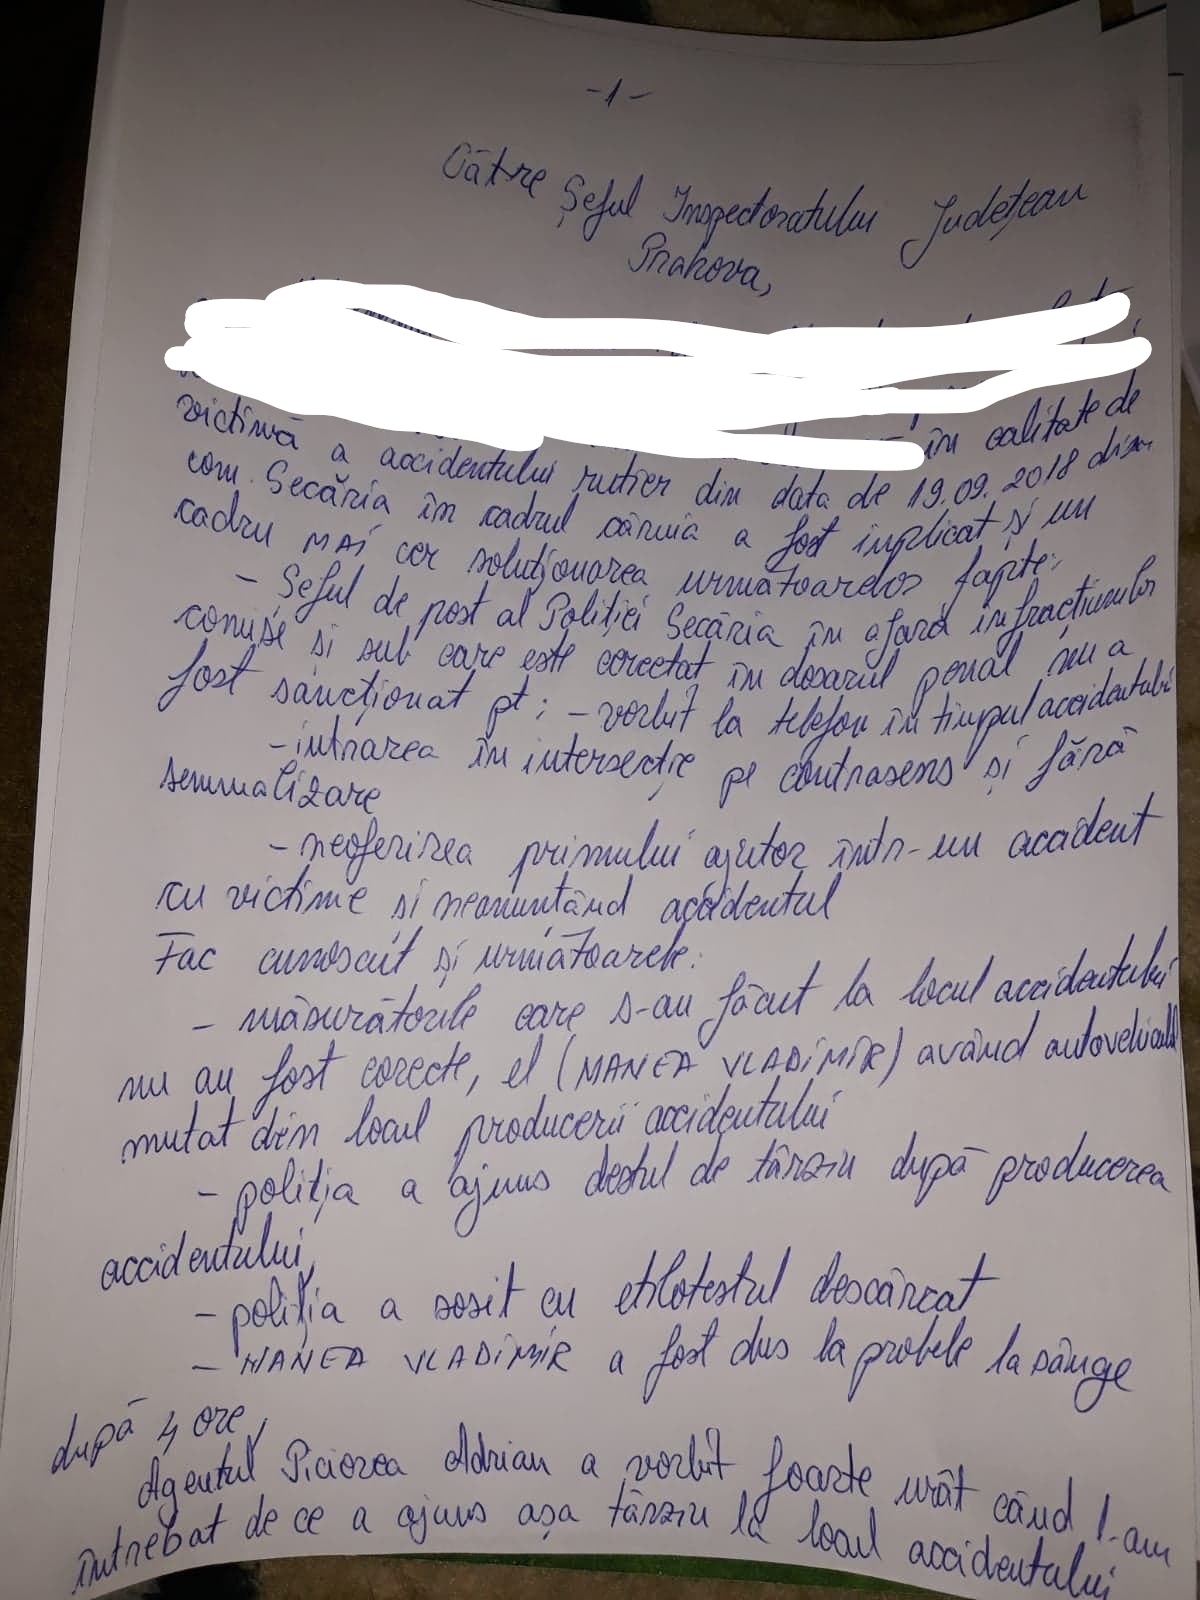 -1-
Către Șeful Inspectoratului Județean
Prahova,
în calitate de
victimă a accidentului rutier din data de 19.09.2018 din
com. Secăria în cadrul căruia a fost implicat și un
cadru MAI cer soluționarea următoarelor fapte:
- Șeful de post al Poliției Secăria în afara infracțiunilor
comise și sub care este cercetat în dosarul penal nu a
fost sancționat pt: - vorbit la telefon în timpul accidentului
- intrarea în intersecție pe contrasens și fără
semnalizare
- neoferirea primului ajutor într-un accident
cu victime și neanunțând accidentul
Fac cunoscut și următoarele:
- măsurătorile care s-au făcut la locul accidentului
nu au fost corecte, el (MANEA VLADIMIR) având autovehiculul
mutat din locul producerii accidentului
- poliția a ajuns destul de târziu după producerea
accidentului,
- poliția a sosit cu etilotestul descărcat
- MANEA VLADIMIR a fost dus la probele la sânge
după 4 ore,
Agentul Piciorea Adrian a vorbit foarte urât când l-am
întrebat de ce a ajuns așa târziu la locul accidentului